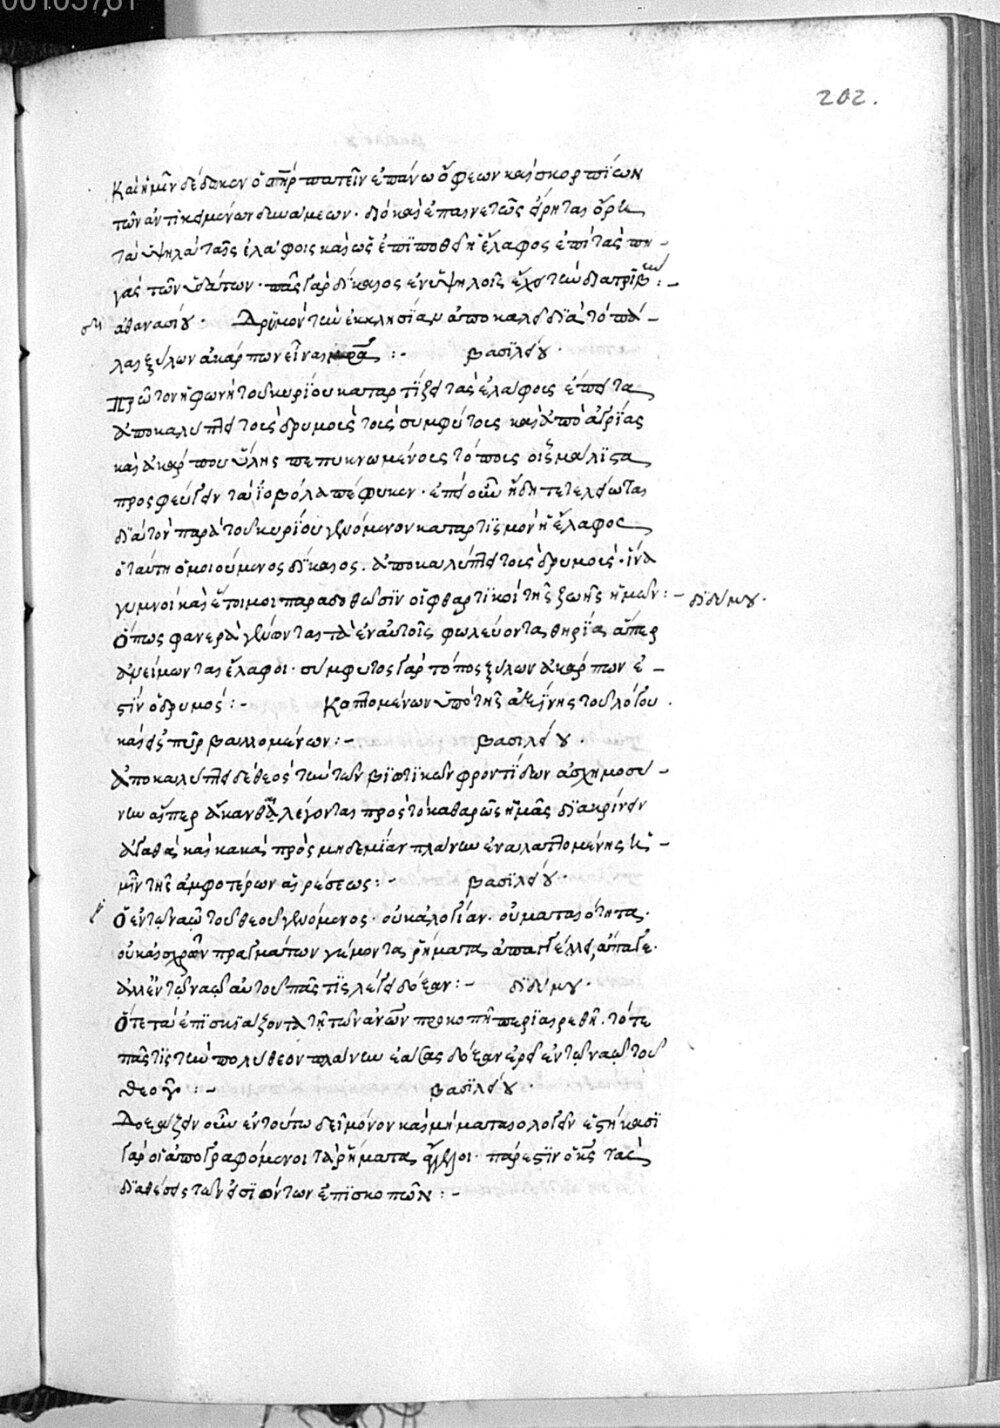 202.
Καὶ ἡμῖν δέδωκεν ὁ σπὴρ πατεῖν ἐπάνω ὄφεων καὶ σκορπίων
τῶν ἀντικειμένων δυνάμεων · διὸ καὶ ἐπαινετῶς εἴρηται ὄρη
τὰ ὑψηλὰ ταῖς ἐλάφοις καὶ ὡς ἐπιποθεῖ ἡ ἔλαφος ἐπὶ τὰς πη-
γὰς τῶν ὑδάτων · πᾶς γὰρ δίκαιος ἐν ὑψηλοῖς ἔχει τὴν διατριβὴν :-
ἀθανασίου · Δρυμὸν τὴν ἐκκλησίαν ἀποκαλεῖ διὰ τὸ πά-
λαι ξύλων ἀκάρπων εἶναι :- βασιλείου ·
Πρῶτον ἡ φωνὴ τοῦ κυρίου καταρτίζει τὰς ἐλάφους ἔπειτα
ἀποκαλύπτει τοὺς δρυμοὺς τοὺς συμφύτους καὶ ἀπὸ ἀγρίας
καὶ ἀκάρπου ὕλης πεπυκνωμένους τόπους οἷς μάλιστα
προσφεύγειν τὰ ἰοβόλα πέφυκεν · ἐπεὶ οὖν ἤδη τετελείωται
διὰ τὸν παρὰ τοῦ κυρίου γενόμενον καταρτισμὸν ἡ ἔλαφος
ὁ ταύτῃ ὁμοιούμενος δίκαιος . ἀποκαλύπτει τοὺς δρυμοὺς · ἵνα
γυμνοὶ καὶ ἕτοιμοι παραδοθῶσιν οἱ φθαρτικοὶ τῆς ζωῆς ἡμῶν :- διδύμου ·
Ὅπως φανερὰ γένωνται τὰ ἐν αὐτοῖς φωλεύοντα θηρία ἅπερ
ἀναιμῶνται ἔλαφοι · σύμφυτος γὰρ τόπος ξύλων ἀκάρπων ἐ-
στὶν ὁ δρυμός :- Κοπτομένων ὑπὸ τῆς ἀξίνης τοῦ λόγου ·
καὶ εἰς πῦρ βαλλομένων :- βασιλείου ·
Ἀποκαλύπτει δὲ θεὸς τὴν τῶν βιωτικῶν φροντίδων ἀσχημοσύ-
νην αἵπερ ἄκανθαι λέγονται πρὸς τὸ καθαρῶς ἡμᾶς διακρίνειν
ἀγαθὰ καὶ κακὰ πρὸς μηδεμίαν πλάνην ἐναλλαττομένης ἡ-
μῖν τῆς ἀμφοτέρων αἱρέσεως :- βασιλείου ·
Ὁ ἐν τῷ ναῷ τοῦ θεοῦ γενόμενος · οὐ κακολογίαν · οὐ ματαιότητα ·
οὐκ αἰσχρῶν πραγμάτων γέμοντα ῥήματα ἀπαγγέλλει, ἄπαγε ·
ἀλλ' ἐν τῷ ναῷ αὐτοῦ πᾶς τις λέγει δόξαν :- διδύμου ·
Ὅτε τὰ ἐπισκιάζοντα τῇ τῶν ἀνων προκοπῇ περιαιρεθῇ · τότε
πᾶς τις τὴν πολύθεον πλάνην ἐάσας δόξαν ἐρεῖ ἐν τῷ ναῷ τοῦ
θεοῦ :- βασιλείου ·
Δοξάζειν οὖν ἐν τούτῳ δεῖ μόνον καὶ μὴ ματαιολογεῖν ἑστήκασι
γὰρ οἱ ἀπογραφόμενοι τὰ ῥήματα ἄγγελοι · πάρεστιν ὁ κς τὰς
διαθέσεις τῶν εἰσιόντων ἐπισκοπῶν :-